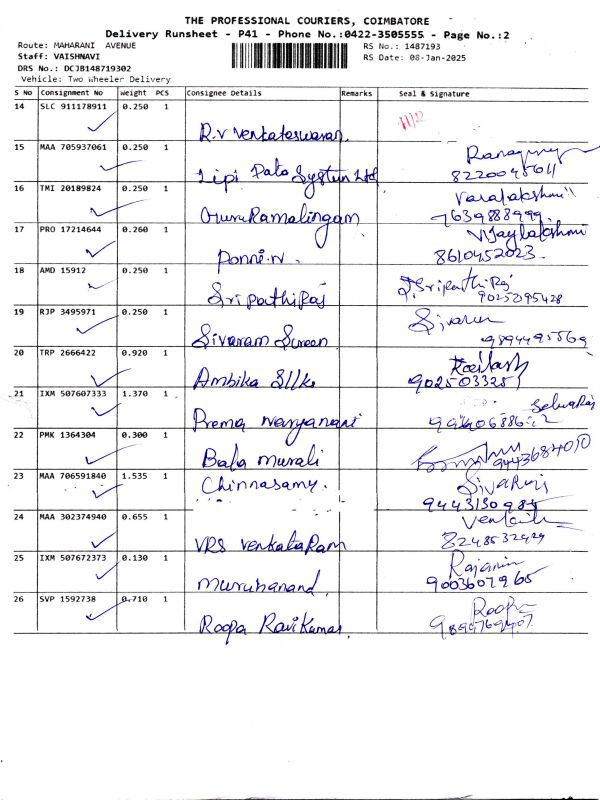 THE PROFESSIONAL COURIERS, COIMBATORE
Delivery Runsheet - P41 - Phone No.:0422-3505555 - Page No.:2
Route: MAHARANI AVENUE RS No.: 1487193
Staff: VAISHNAVI RS Date: 08-Jan-2025
DRS No.: DCJB148719302
Vehicle: Two Wheeler Delivery
S No Consignment No Weight PCS Consignee Details Remarks Seal & Signature
14 SLC 911178911 0.250 1
R.V Venkateswaran
15 MAA 705937061 0.250 1
Lipi Data System Ltd 8220045611
16 TMI 20189824 0.250 1 Varalakshmi
OrumRamalingam 7639883999
17 PRO 17214644 0.260 1 Vijaylakshmi
Ponni.N. 8610452023
18 AMD 15912 0.250 1 Sripathiraj
Sripathiraj 9025095428
19 RJP 3495971 0.250 1
Sivaram Sureen 9894495569
20 TRP 2666422 0.920 1 Kailash
Ambika Silks 9025033251
21 IXM 507607333 1.370 1 Selvaraj
Prema Naryanani
22 PMK 1364304 0.300 1 9443684050
Bala Murali
23 MAA 706591840 1.535 1
Chinnasamy.
24 MAA 302374940 0.655 1
VRS Venkata Ram 8248532429
25 IXM 507672373 0.130 1
Muruhanand 9003607965
26 SVP 1592738 0.710 1 Roopa
Roopa Ravikumar